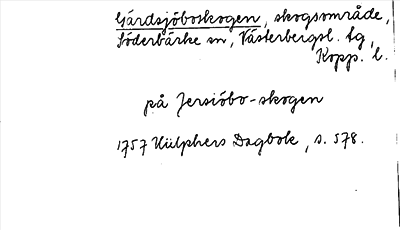 Gårdsjöboskogen, skogsområde,
Söderbärke sn, Västerbergsl. tg,
Kopp. l.
på Jersiöbo-skogen
1757 Hülphers Dagbok, s. 578.